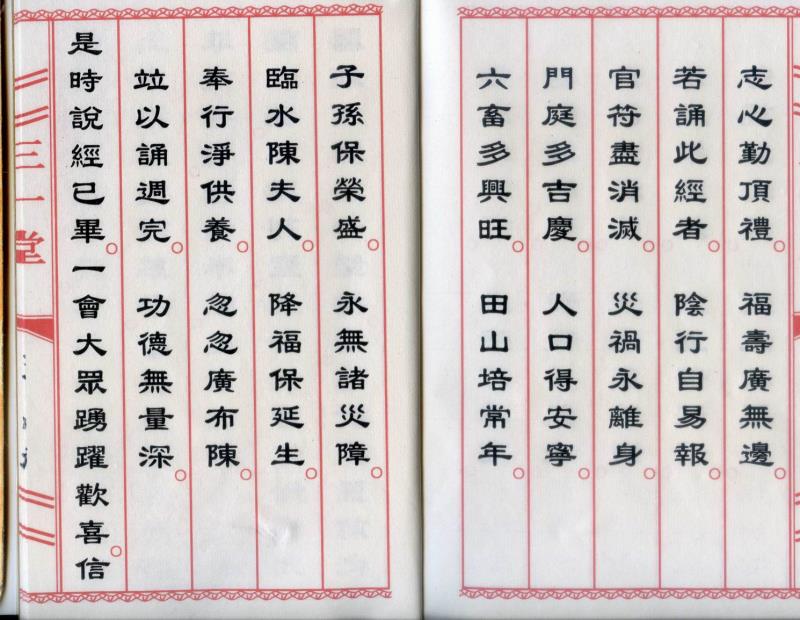 志心勤頂禮。福壽廣無邊。
若誦此經者。陰行自易報。
官符盡消滅。災禍永離身。
門庭多吉慶。人口得安寧。
六畜多興旺。田山培常年。
子孫保榮盛。永無諸災障。
臨水陳夫人。降福保延生。
奉行淨供養。忽忽廣布陳。
竝以誦週完。功德無量深。
是時說經已畢一會大眾踴躍歡喜。信
三一堂